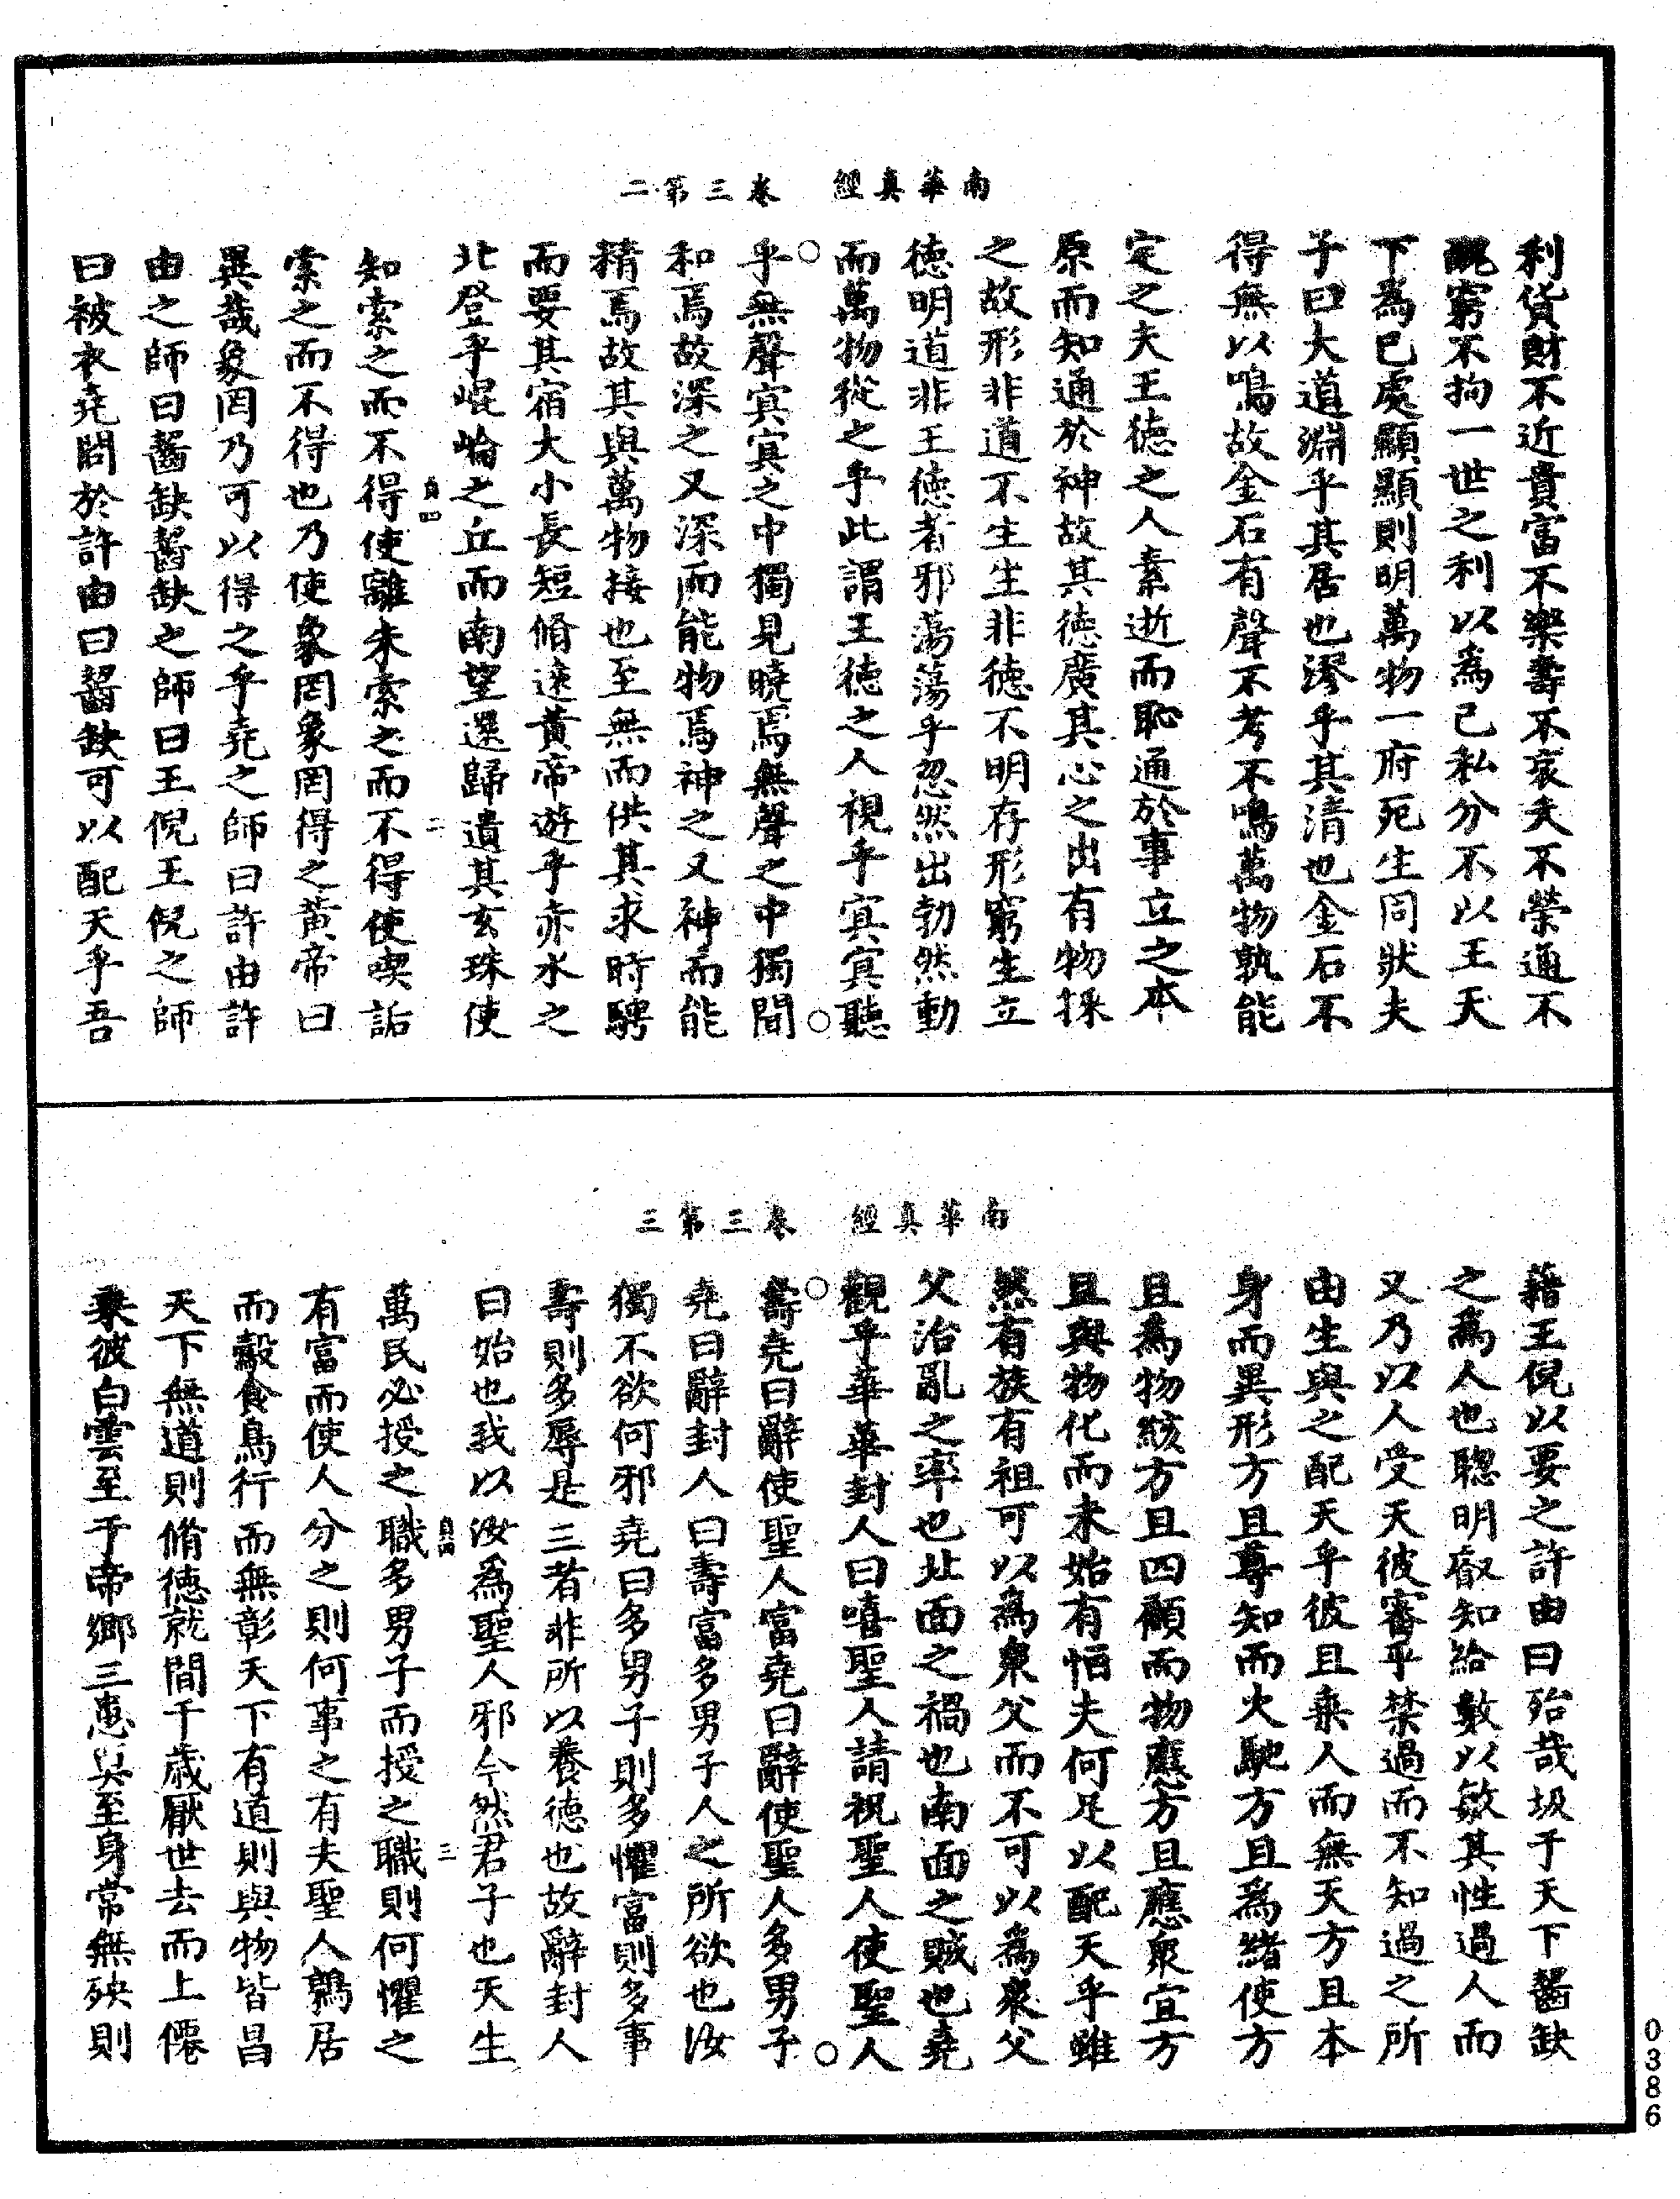 南華真經　卷三第二
利貨財不近貴富不樂壽不哀夭不榮通不
醜窮不拘一世之利以為己私分不以王天
下為已處顯顯則明萬物一府死生同狀夫
子曰大道淵乎其居也漻乎其清也金石不
得無以鳴故金石有聲不考不鳴萬物孰能
定之夫王德之人素逝而恥通於事立之本
原而知通於神故其德廣其心之出有物採
之故形非道不生生非德不明存形窮生立
德明道非王德者邪蕩蕩乎忽然出勃然動
而萬物從之乎此謂王德之人視乎冥冥聽
乎無聲冥冥之中獨見曉焉無聲之中獨聞
和焉故深之又深而能物焉神之又神而能
精焉故其與萬物接也至無而供其求時騁
而要其宿大小長短脩遠黃帝遊乎赤水之
北登乎崐崘之丘而南望還歸遺其玄珠使
貞四　二
知索之而不得使離朱索之而不得使喫詬
索之而不得也乃使象罔象罔得之黃帝曰
異哉象罔乃可以得之乎堯之師曰許由許
由之師曰齧缺齧缺之師曰王倪王倪之師
曰被衣堯問於許由曰齧缺可以配天乎吾
南華真經　卷三第三
藉王倪以要之許由曰殆哉圾于天下齧缺
之為人也聰明叡知給數以敏其性過人而
又乃以人受天彼審乎禁過而不知過之所
由生與之配天乎彼且乘人而無天方且本
身而異形方且尊知而火馳方且為緒使方
且為物絯方且四顧而物應方且應衆宜方
且與物化而未始有恒夫何足以配天乎雖
然有族有祖可以為衆父而不可以為衆父
父治亂之率也北面之禍也南面之賊也堯
觀乎華華封人曰嘻聖人請祝聖人使聖人
壽堯曰辭使聖人富堯曰辭使聖人多男子
堯曰辭封人曰壽富多男子人之所欲也汝
獨不欲何邪堯曰多男子則多懼富則多事
壽則多辱是三者非所以養德也故辭封人
曰始也我以汝為聖人邪今然君子也天生
貞四　三
萬民必授之職多男子而授之職則何懼之
有富而使人分之則何事之有夫聖人鶉居
而鷇食鳥行而無彰天下有道則與物皆昌
天下無道則脩德就閒千歲厭世去而上僊
乘彼白雲至于帝鄉三患莫至身常無殃則
0386